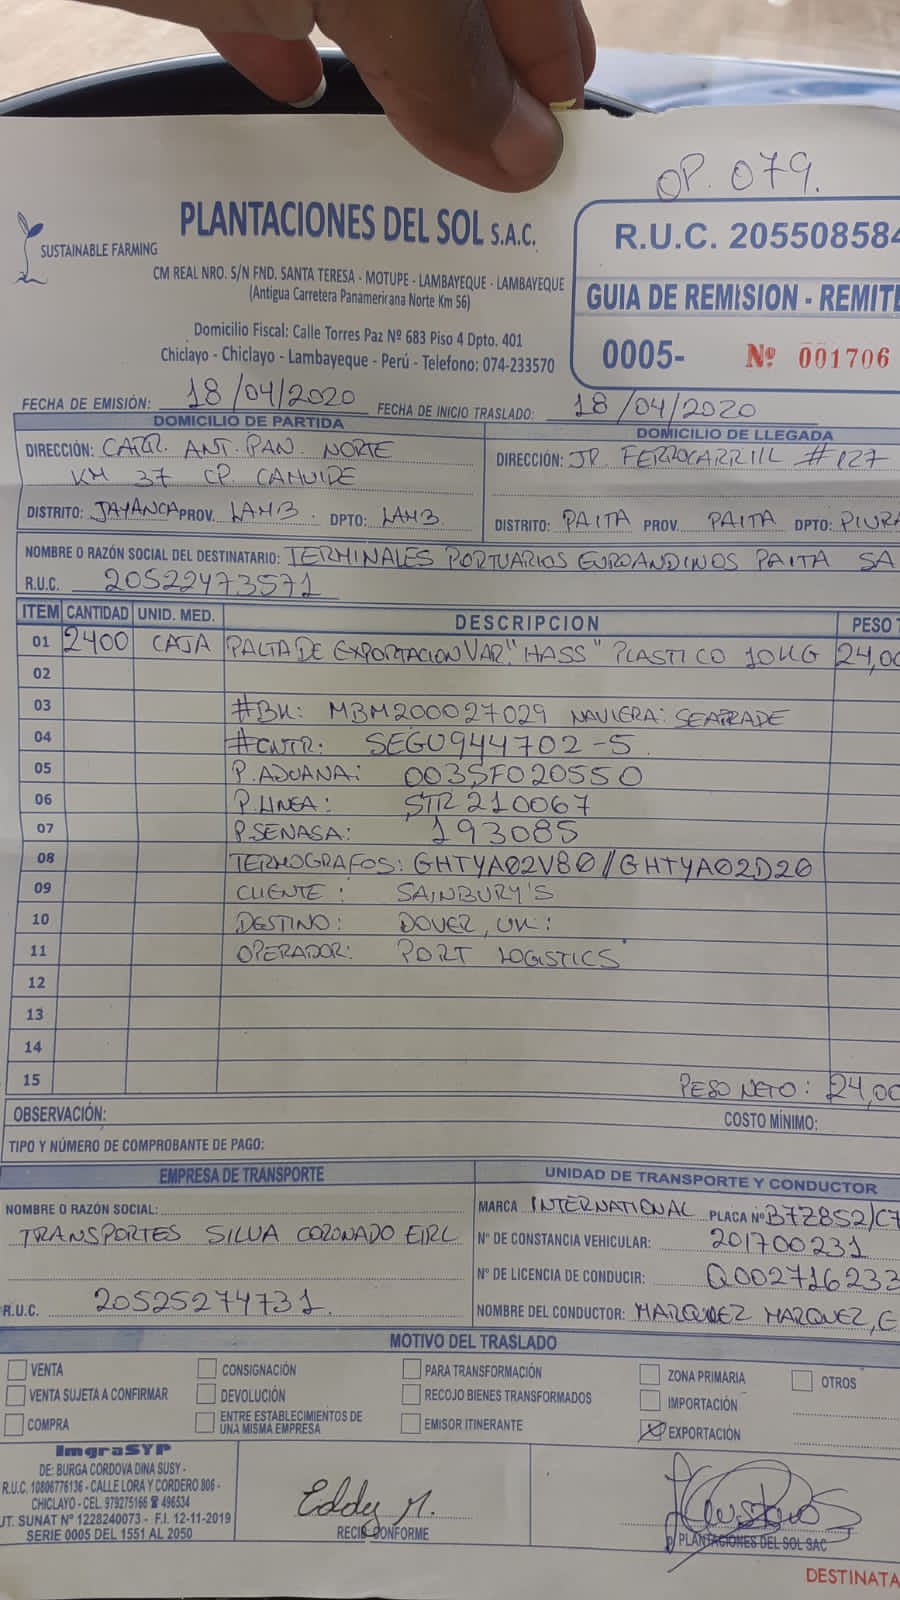 OP. 079.
SUSTAINABLE FARMING
PLANTACIONES DEL SOL S.A.C.
CM REAL NRO. S/N FND. SANTA TERESA - MOTUPE - LAMBAYEQUE - LAMBAYEQUE
(Antigua Carretera Panamericana Norte Km 56)
Domicilio Fiscal: Calle Torres Paz Nº 683 Piso 4 Dpto. 401
Chiclayo - Chiclayo - Lambayeque - Perú - Telefono: 074-233570
R.U.C. 205508584
GUIA DE REMISION - REMITE
0005- Nº 001706
FECHA DE EMISIÓN: 18/04/2020 FECHA DE INICIO TRASLADO: 18/04/2020
DOMICILIO DE PARTIDA
DIRECCIÓN: CARR. ANT. PAN. NORTE
KM 37 CP. CAHUIDE
DISTRITO: JAYANCA PROV. LAMB. DPTO: LAMB.
DOMICILIO DE LLEGADA
DIRECCIÓN: JR. FERROCARRIL #127
DISTRITO: PAITA PROV. PAITA DPTO: PIURA
NOMBRE O RAZÓN SOCIAL DEL DESTINATARIO: TERMINALES PORTUARIOS EUROANDINOS PAITA SA
R.U.C. 20522473571
ITEM CANTIDAD UNID. MED. DESCRIPCION PESO T
01 2400 CAJA PALTA DE EXPORTACION VAR. "HASS" PLASTICO 10KG 24,00
02
03 #BK: MBM200027029 NAVIERA: SEATRADE
04 #CNTR: SEGU944702-5
05 P. ADUANA: 003SF020550
06 P. LINEA: STR210067
07 P. SENASA: 193085
08 TERMOGRAFOS: GHTYA02V80//GHTYA02D20
09 CLIENTE: SAINBURY'S
10 DESTINO: DOVER, UK:
11 OPERADOR: PORT LOGISTICS
12
13
14
15 PESO NETO: 24,00
OBSERVACIÓN: COSTO MÍNIMO:
TIPO Y NÚMERO DE COMPROBANTE DE PAGO:
EMPRESA DE TRANSPORTE
NOMBRE O RAZÓN SOCIAL:
TRANSPORTES SILVA CORONADO EIRL
R.U.C. 20525274731
UNIDAD DE TRANSPORTE Y CONDUCTOR
MARCA INTERNATIONAL PLACA Nº B7Z852/C7
Nº DE CONSTANCIA VEHICULAR: 201700231
Nº DE LICENCIA DE CONDUCIR: Q002716233
NOMBRE DEL CONDUCTOR: MARQUEZ MARQUEZ, E
MOTIVO DEL TRASLADO
VENTA CONSIGNACIÓN PARA TRANSFORMACIÓN ZONA PRIMARIA OTROS
VENTA SUJETA A CONFIRMAR DEVOLUCIÓN RECOJO BIENES TRANSFORMADOS IMPORTACIÓN
COMPRA ENTRE ESTABLECIMIENTOS DE UNA MISMA EMPRESA EMISOR ITINERANTE EXPORTACIÓN
ImgraSYP
DE: BURGA CORDOVA DINA SUSY -
R.U.C. 10806776136 - CALLE LORA Y CORDERO 806 -
CHICLAYO - CEL. 979275166 ☎ 496534
UT. SUNAT Nº 1228240073 - F.I. 12-11-2019
SERIE 0005 DEL 1551 AL 2050
Eddy M.
RECIBI CONFORME
p. PLANTACIONES DEL SOL SAC
DESTINATA